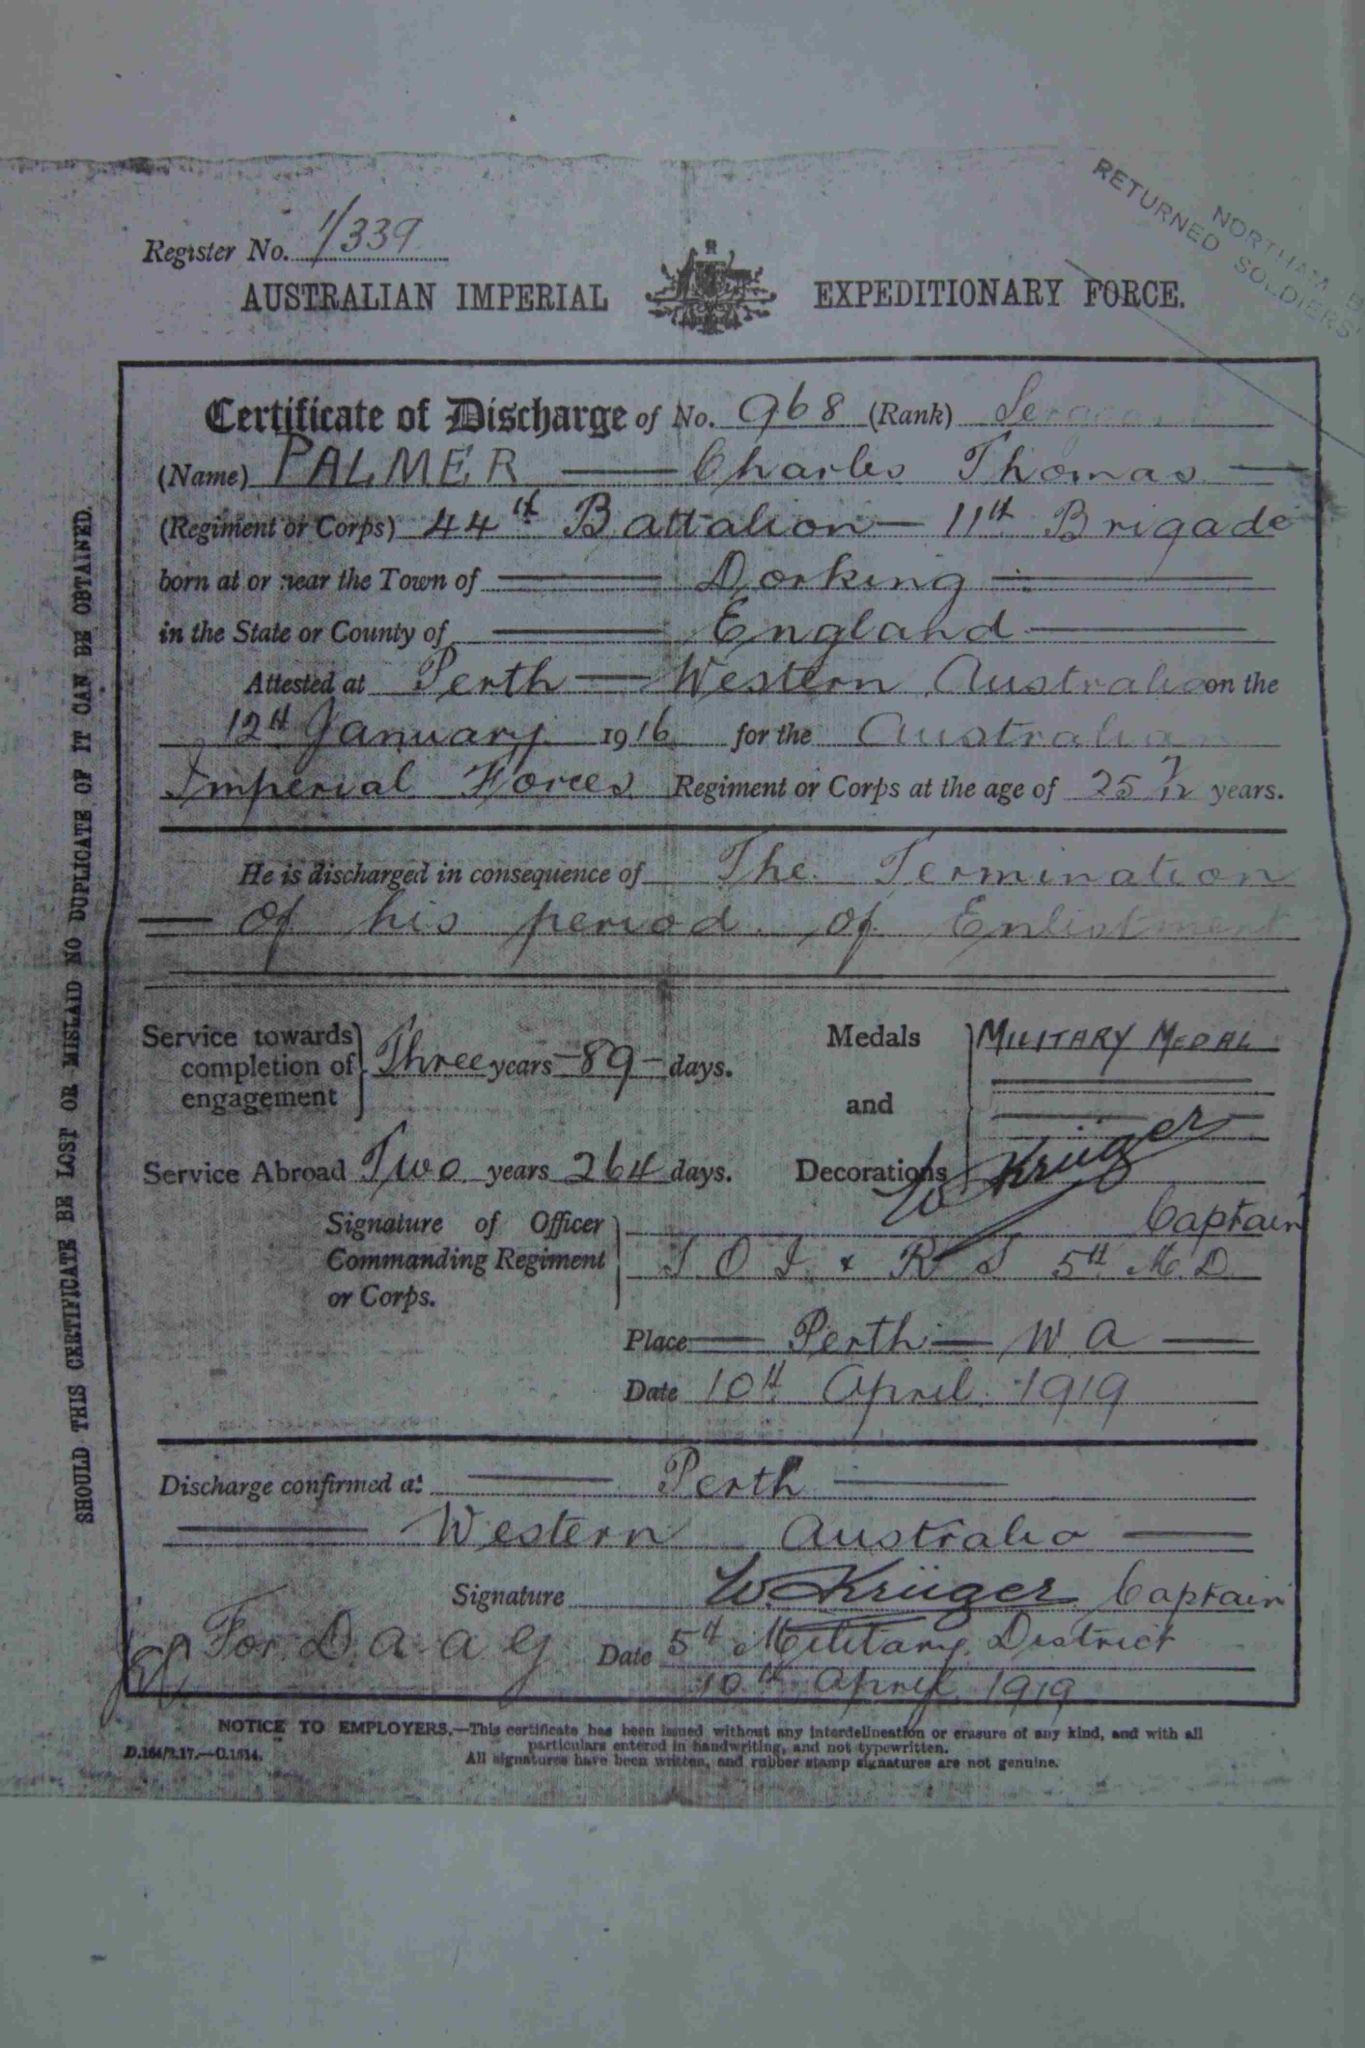 NORTHAM B
RETURNED SOLDIERS
Register No. 1/339
AUSTRALIAN IMPERIAL EXPEDITIONARY FORCE.
Certificate of Discharge of No. 968 (Rank) Sergeant
(Name) PALMER — Charles Thomas —
(Regiment or Corps) 44th Battalion — 11th Brigade
born at or near the Town of — Dorking —
in the State or County of — England —
Attested at Perth — Western Australia on the
12th January 1916 for the Australian
Imperial Forces Regiment or Corps at the age of 25 7/12 years.
He is discharged in consequence of The Termination
— of his period of Enlistment
Service towards completion of engagement } Three years — 89 — days.
Medals and Decorations } MILITARY MEDAL
Service Abroad Two years 264 days.
W Krüger
Signature of Officer Commanding Regiment or Corps. } Captain
S O I & R S 5th M.D.
Place — Perth — W A —
Date 10th April 1919
Discharge confirmed at — Perth —
— Western Australia —
Signature W. Krüger Captain
For D.A.A.G Date 5th Military District
10th April 1919
NOTICE TO EMPLOYERS.—This certificate has been issued without any interdelineation or erasure of any kind, and with all
particulars entered in handwriting, and not typewritten.
D.164/2.17.—C.1614.
All signatures have been written, and rubber stamp signatures are not genuine.
SHOULD THIS CERTIFICATE BE LOST OR MISLAID NO DUPLICATE OF IT CAN BE OBTAINED.